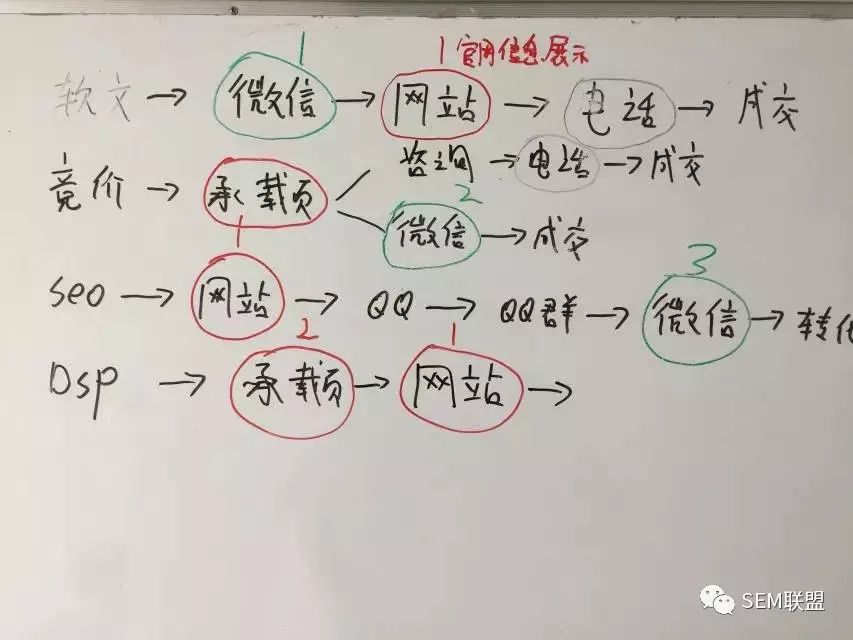 1 1 官网信息展示
软文 → 微信 → 网站 → 电话 → 成交
竞价 → 承载页 咨询 → 电话 → 成交
2
微信 → 成交
1 3
seo → 网站 → QQ → QQ群 → 微信 → 转化
2 1
Dsp → 承载页 → 网站 →
SEM联盟